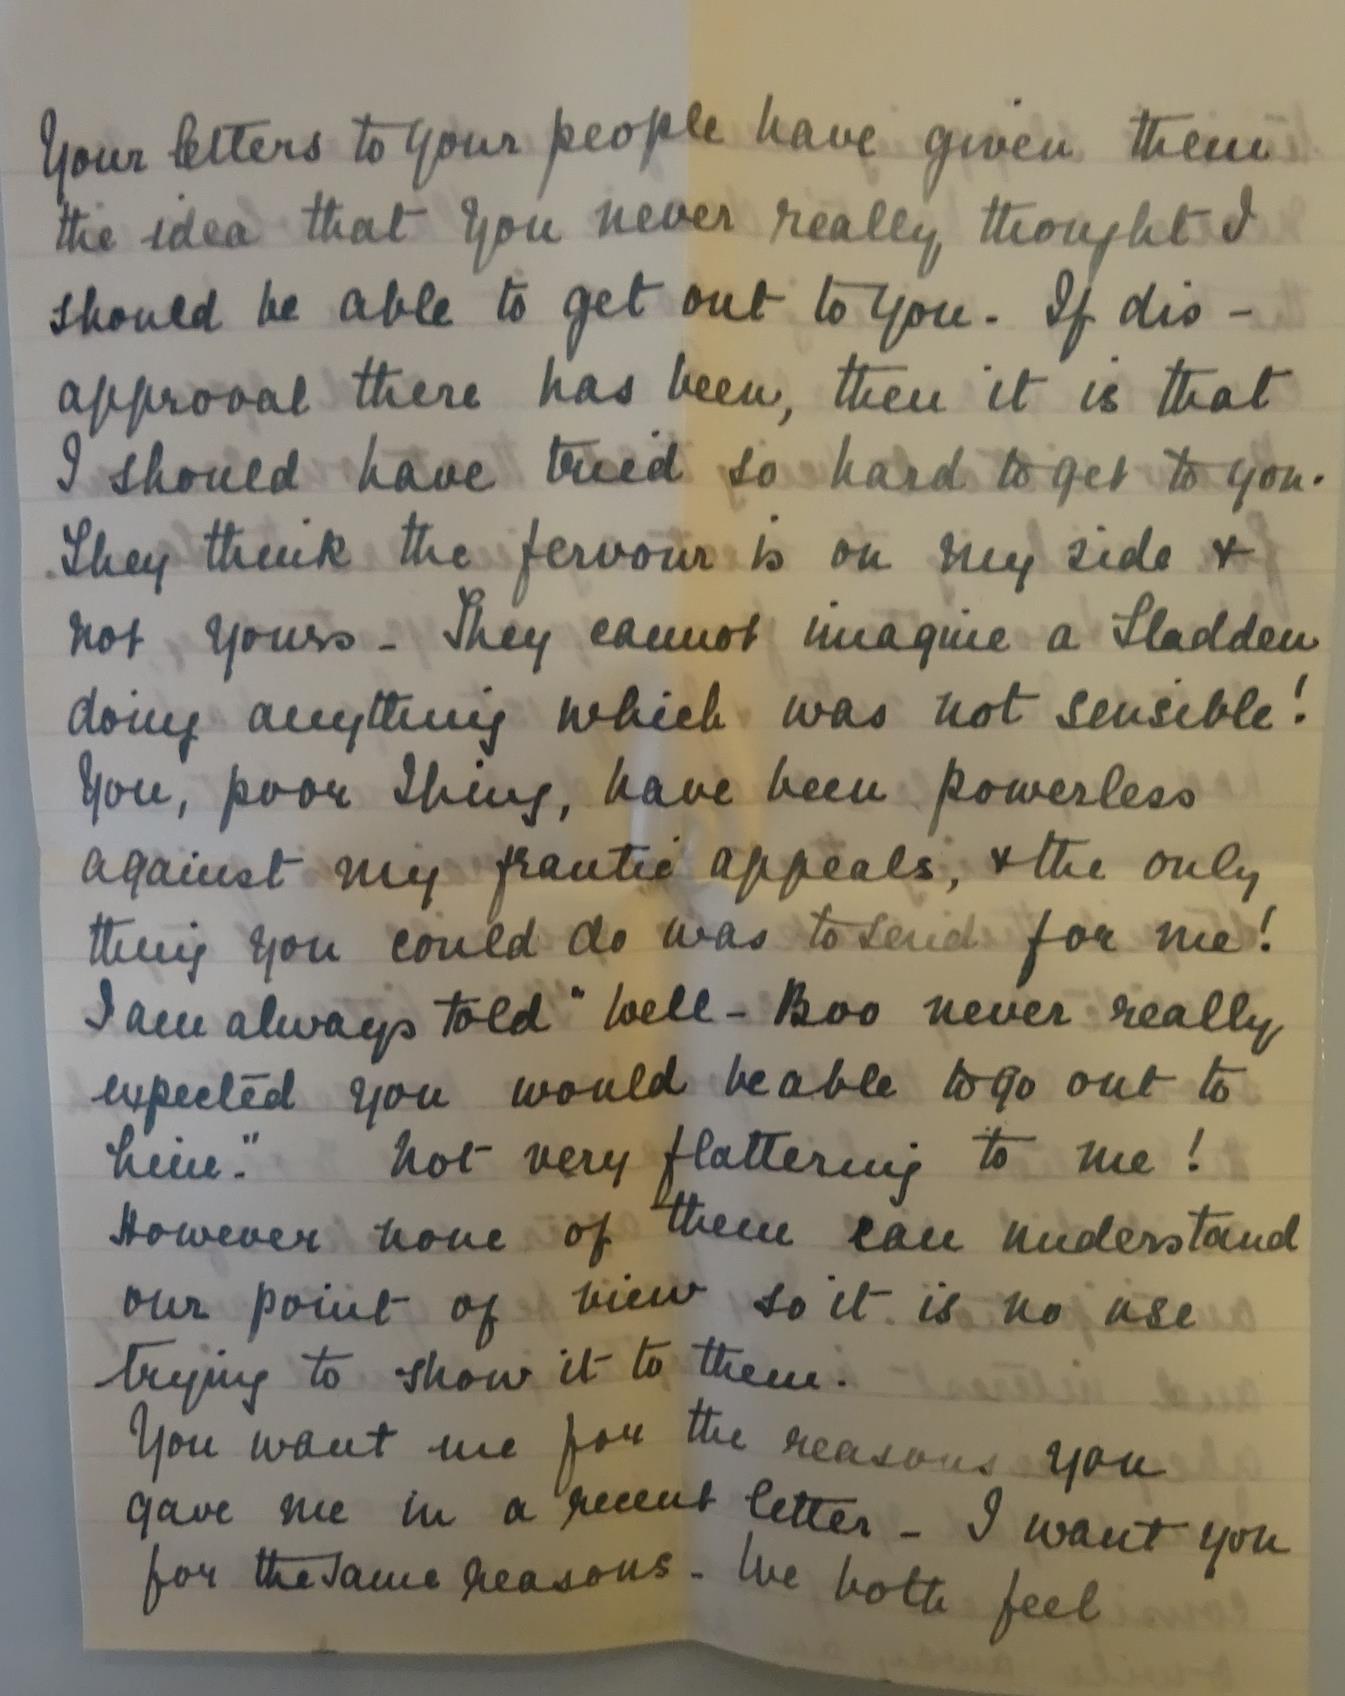 Your letters to your people have given them
the idea that you never really thought I
should be able to get out to you. If dis -
approval there has been, then it is that
I should have tried so hard to get to you.
They think the fervour is on my side &
not yours - They cannot imagine a Sladden
doing anything which was not sensible!
You, poor thing, have been powerless
against my frantic appeals, & the only
thing you could do was to send for me!
I am always told "Well - Boo never really
expected you would be able to go out to
him." Not very flattering to me!
However none of them can understand
our point of view so it is no use
trying to show it to them.
You want me for the reasons you
gave me in a recent letter - I want you
for the same reasons - We both feel